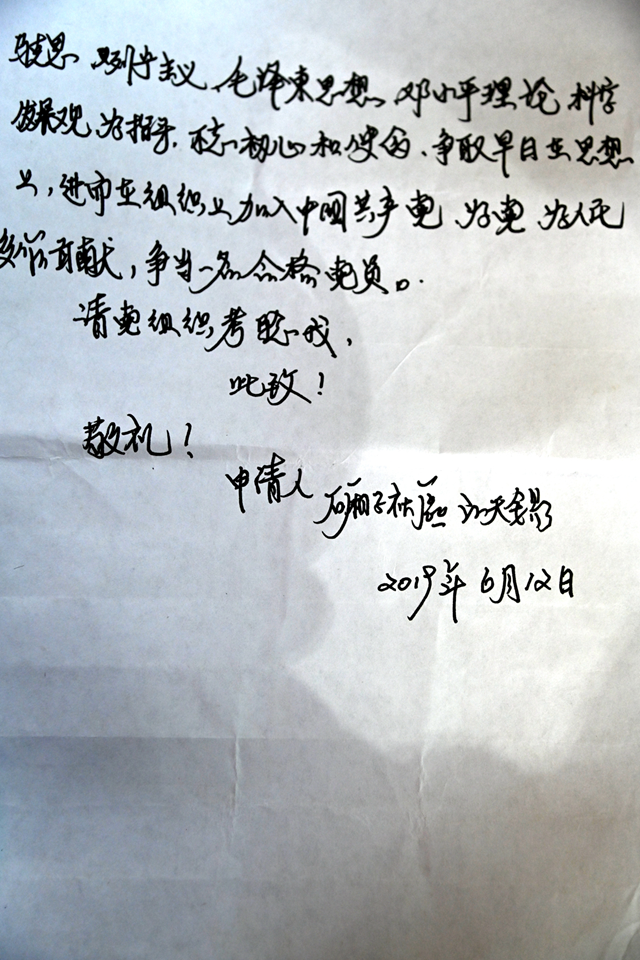 马克思 列宁主义、毛泽东思想、邓小平理论 科学
发展观 为指导。不忘初心和使命、争取早日在思想
上,进而在组织上加入中国共产党、为党、为人民
多作贡献,争当一名合格党员。
请党组织考验我,
此致!
敬礼!
申请人 石厢子社区
2019年6月12日